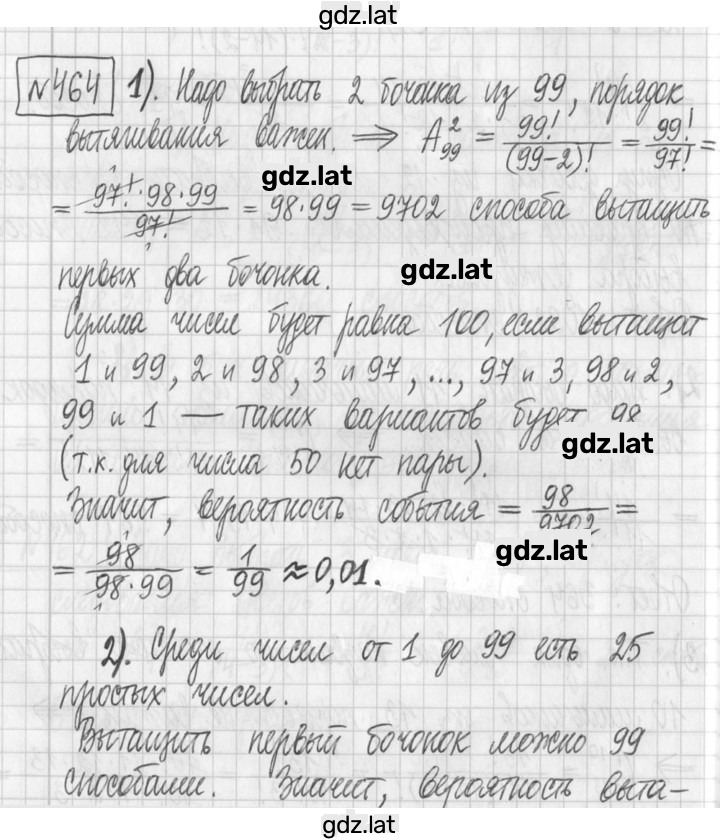 gdz.lat
№464 1). Надо выбрать 2 бочонка из 99, порядок
вытягивания важен. ⇒ A²₉₉ = 99!/(99-2)! = 99!/97! =
gdz.lat
= 97!·98·99/97! = 98·99 = 9702 способа вытащить
первых два бочонка.
gdz.lat
Сумма чисел будет равна 100, если вытащат
1 и 99, 2 и 98, 3 и 97, ..., 97 и 3, 98 и 2,
99 и 1 — таких вариантов будет 98
gdz.lat
(т.к. для числа 50 нет пары).
Значит, вероятность события = 98/9702 =
gdz.lat
= 98/98·99 = 1/99 ≈ 0,01.
2). Среди чисел от 1 до 99 есть 25
простых чисел.
Вытащить первый бочонок можно 99
способами. Значит, вероятность выта-
gdz.lat